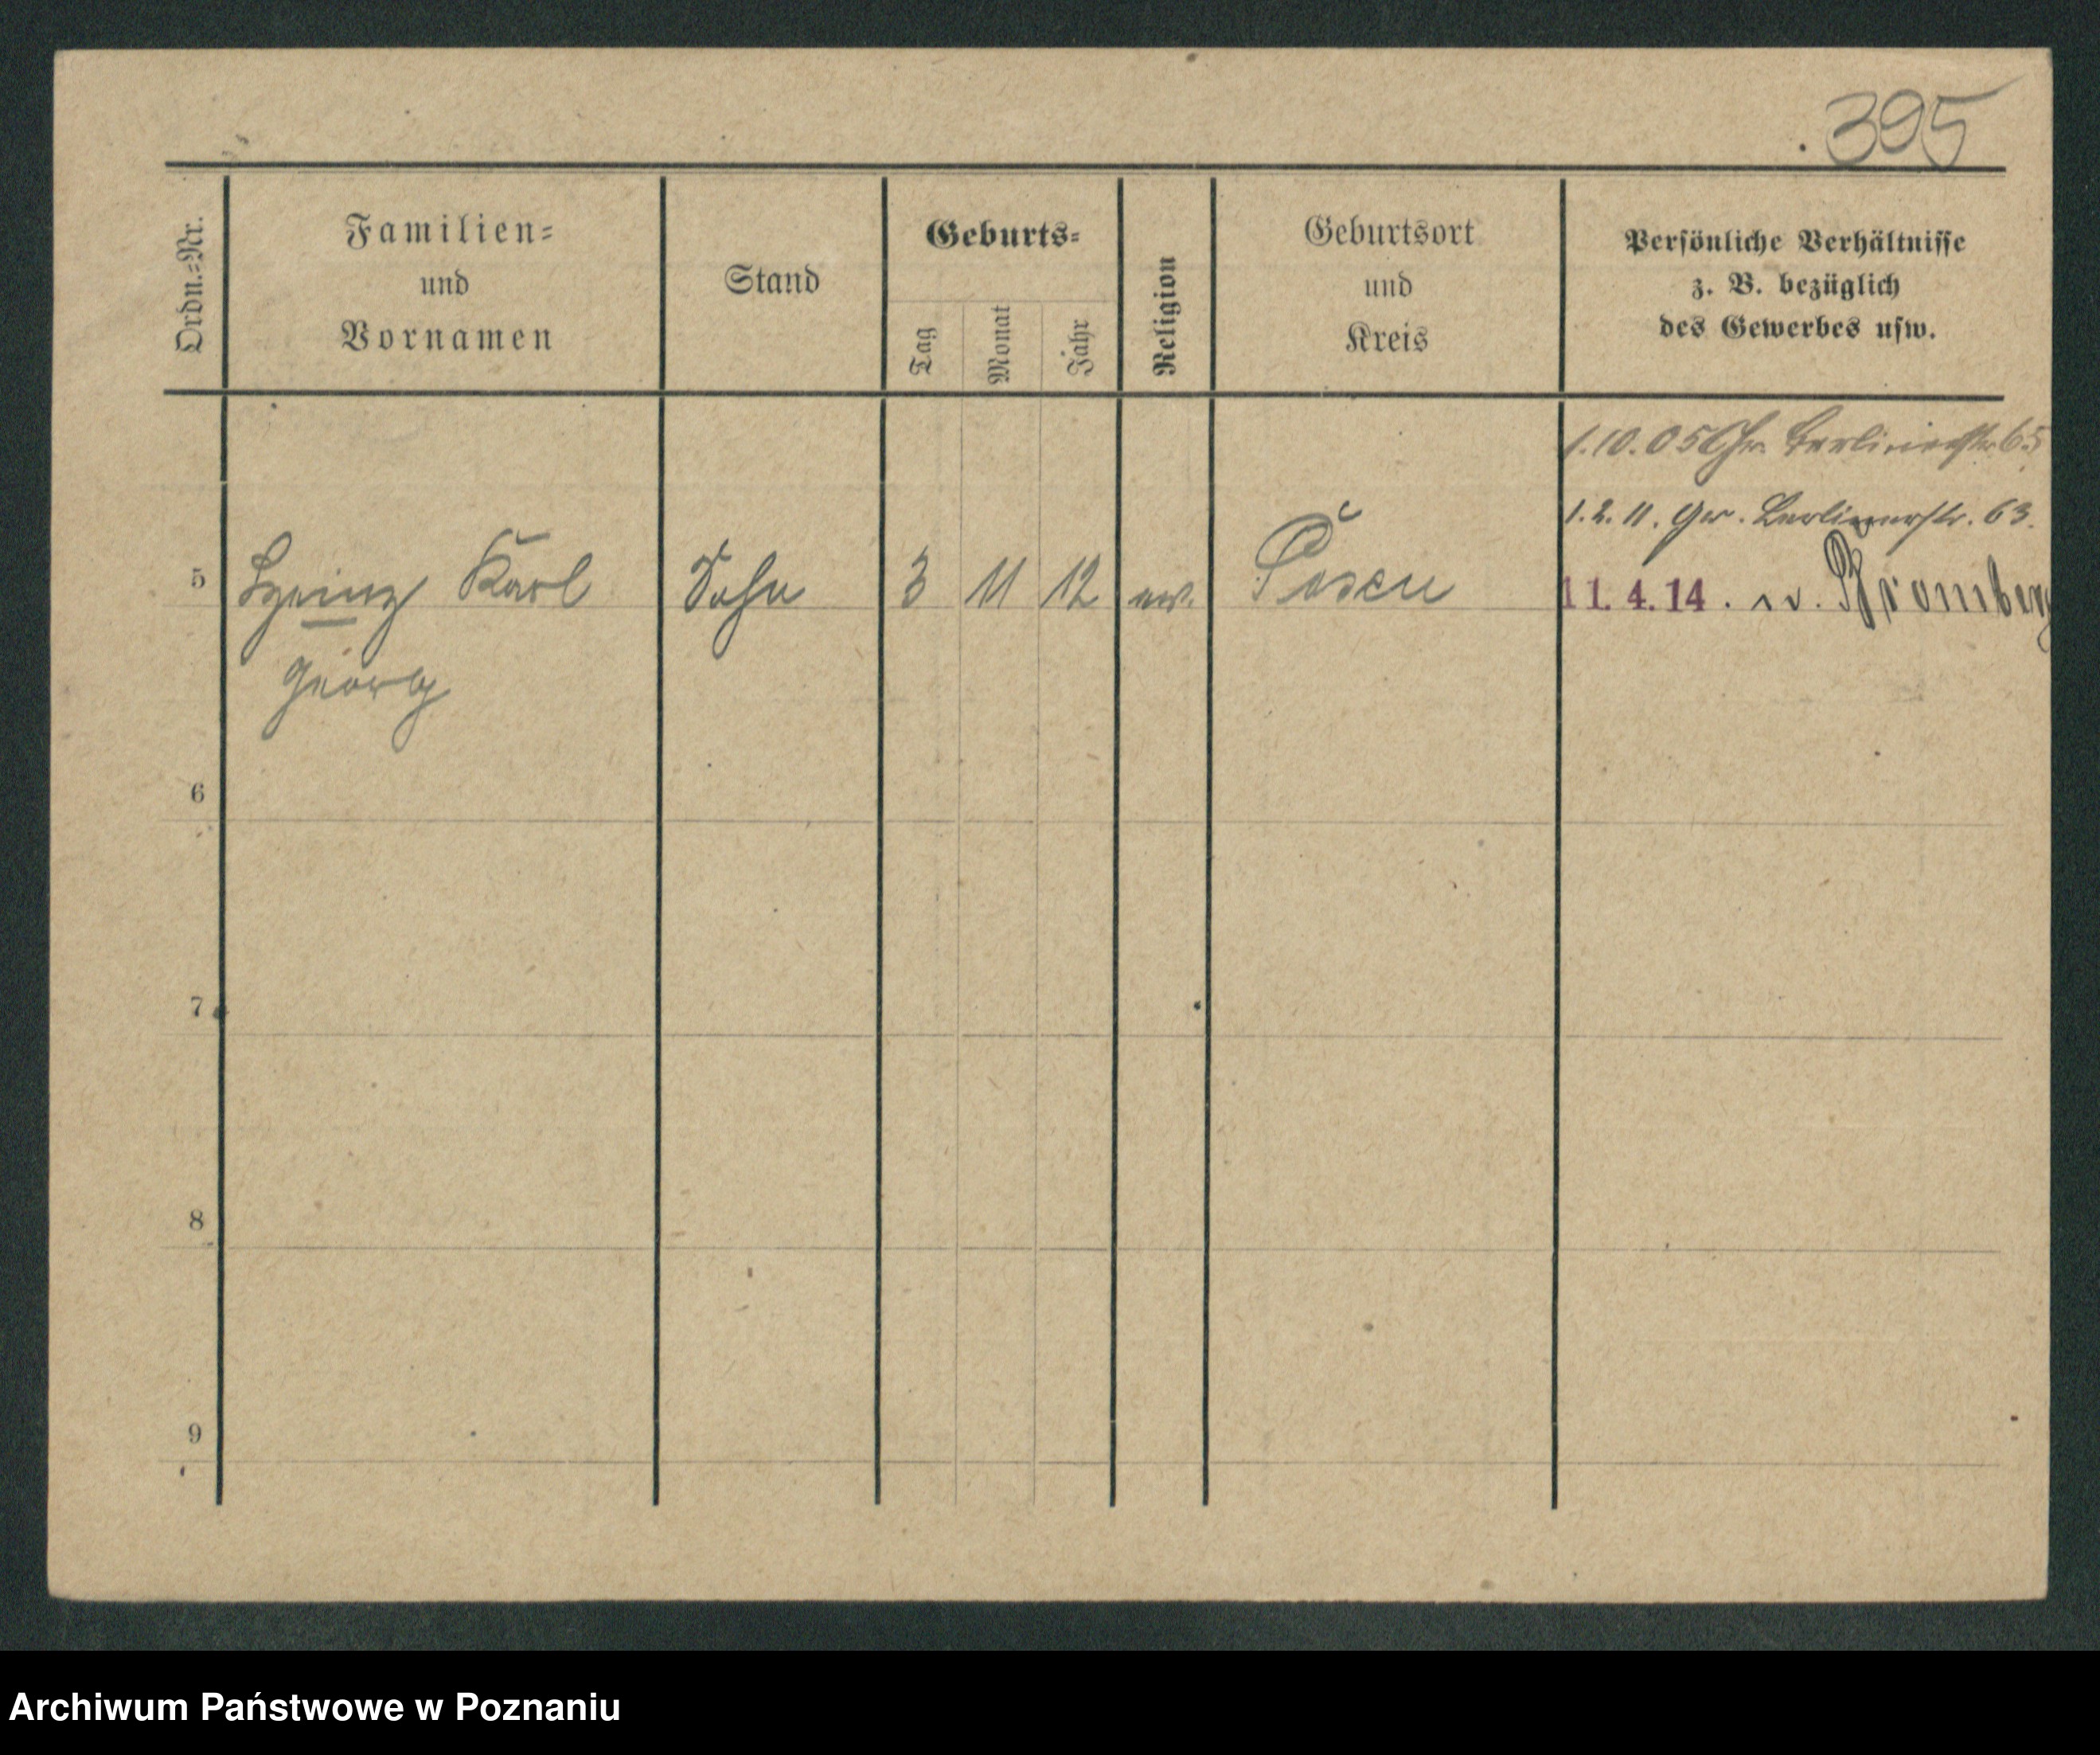 395
Ordn.-Nr.
Familien-
und
Vornamen
Stand
Geburts-
Tag
Monat
Jahr
Religion
Geburtsort
und
Kreis
Persönliche Verhältnisse
z. B. bezüglich
des Gewerbes usw.
1.10.05 Gr. Berlinerstr 65
1.2.11. Gr. Berlinerstr. 63.
5 Heinz Karl Sohn 3 11 12 ev. Posen 11.4.14. n. Bromberg
Georg
6
7
8
9
Archiwum Państwowe w Poznaniu